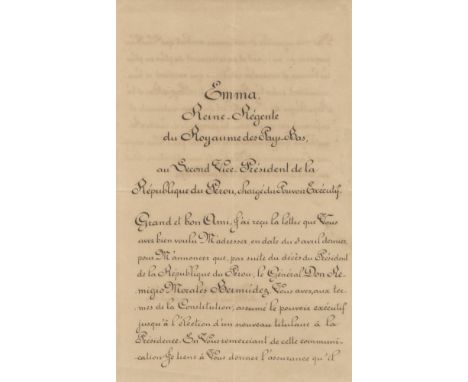 Emma,
Reine-Régente
du Royaume des Pays-Bas,
au Second Vice-Président de la
République du Pérou, chargé du Pouvoir Exécutif.
Grand et bon Ami. J'ai reçu la lettre que Vous
avez bien voulu M'adresser, en date du 3 avril dernier,
pour M'annoncer que, par suite du décès du Président
de la République du Pérou, le Général Don Re-
migio Morales Bermúdez, Vous avez, aux ter-
mes de la Constitution, assumé le pouvoir exécutif
jusqu'à l'élection d'un nouveau titulaire à la
Présidence. En Vous remerciant de cette communi-
cation Je tiens à Vous donner l'assurance qu'il